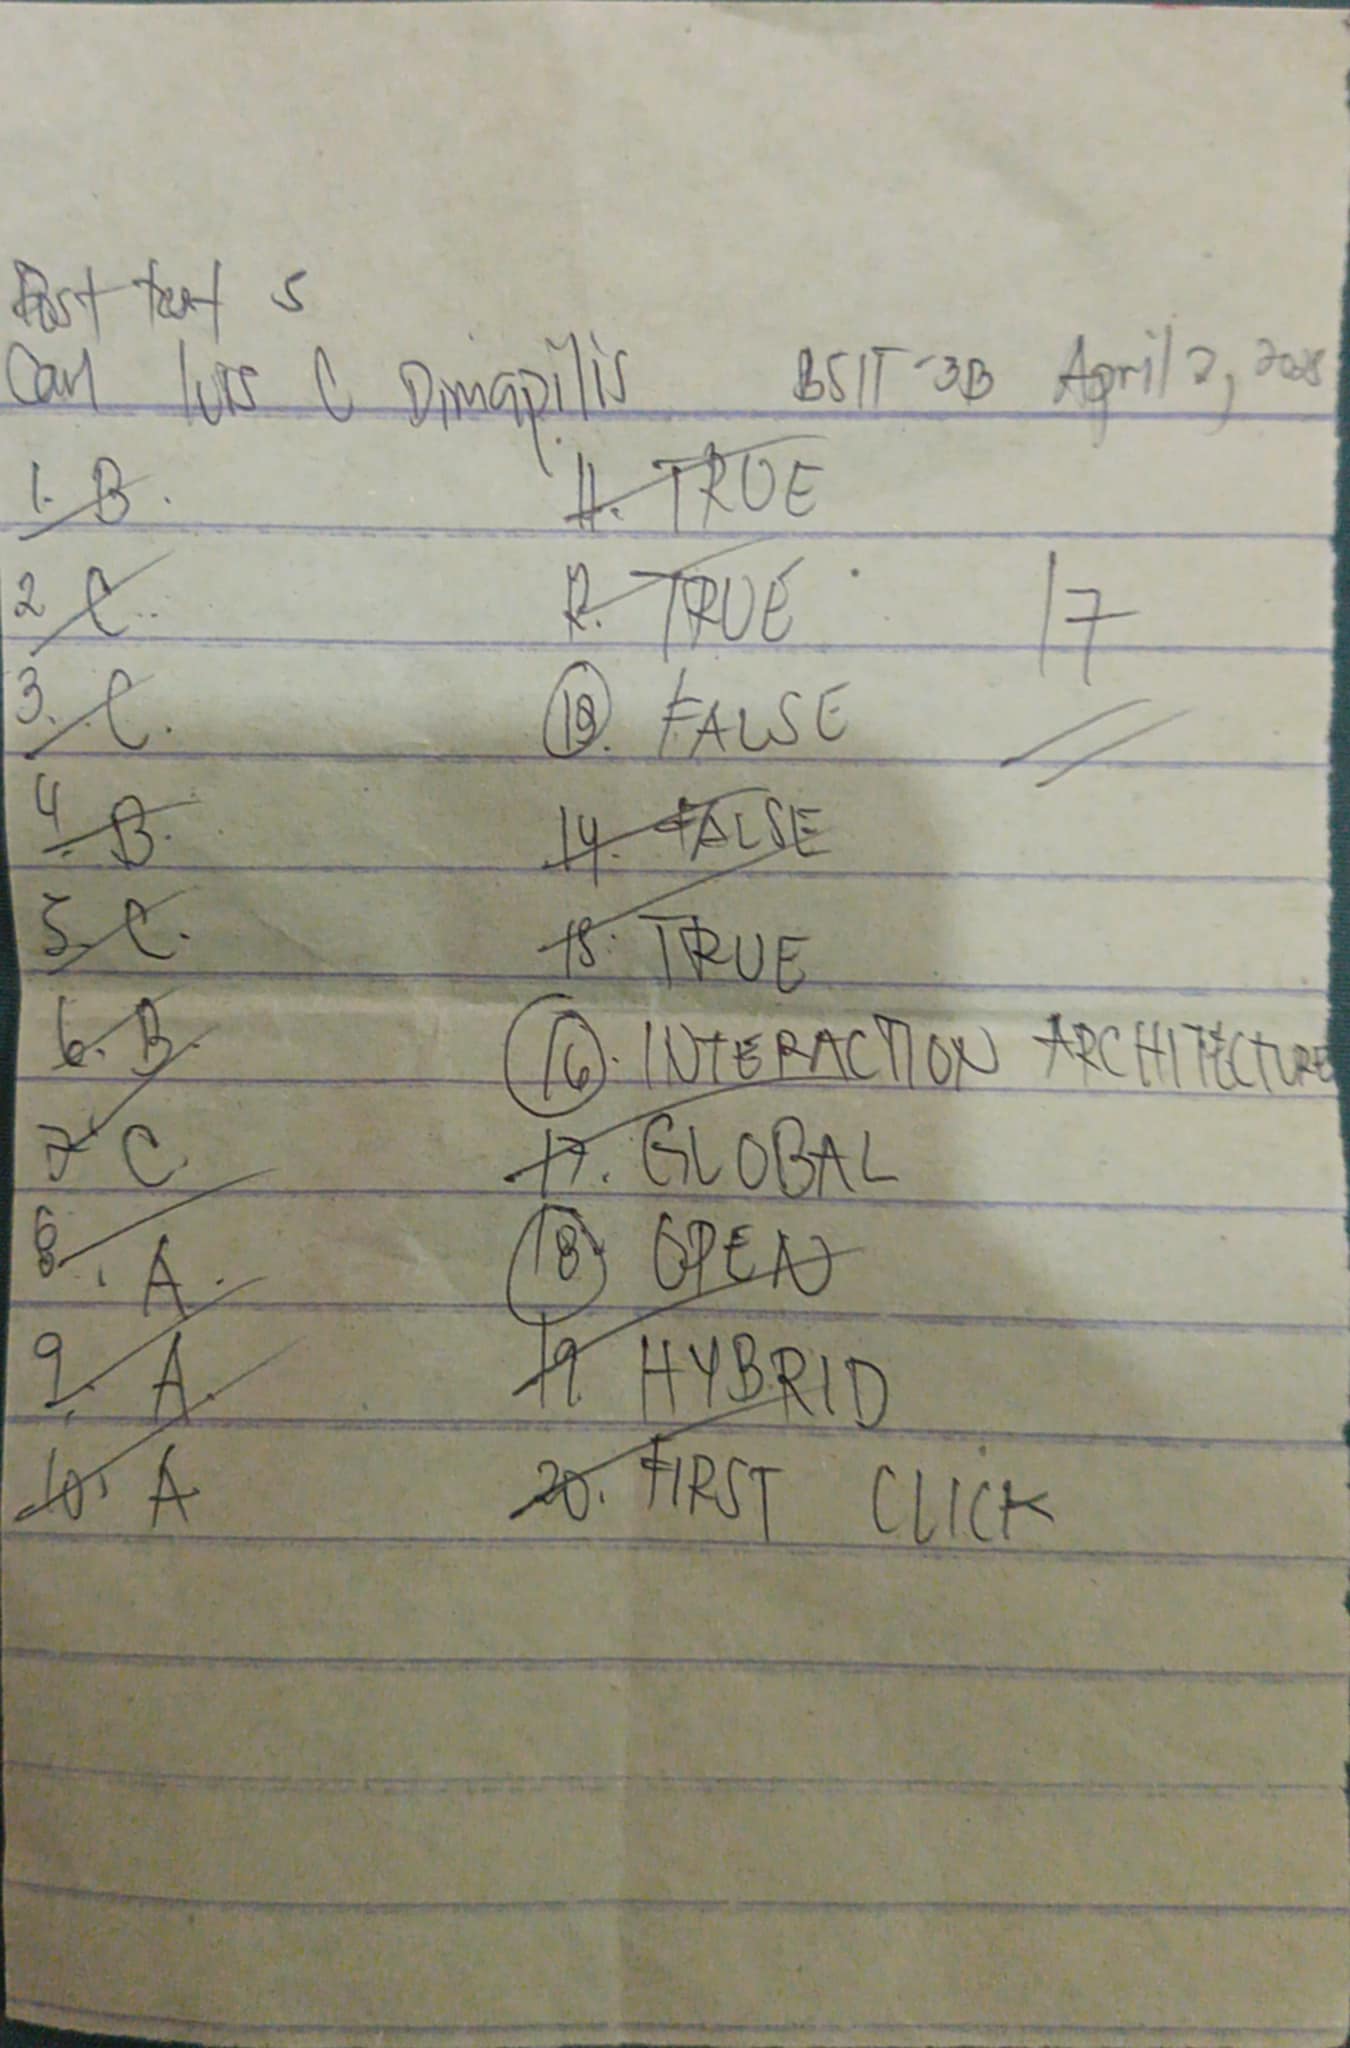 Post test 5
Carl luis C Dimapilis BSIT-3B April 2, 2025
1. B.
2 C.
3. C.
4. B.
5. C.
6. B.
7 C
8. A.
9. A.
10. A
11. TRUE
12. TRUE
13. FALSE
14. FALSE
15. TRUE
16. INTERACTION ARCHITECTURE
17. GLOBAL
18 OPEN
19 HYBRID
20. FIRST CLICK
17